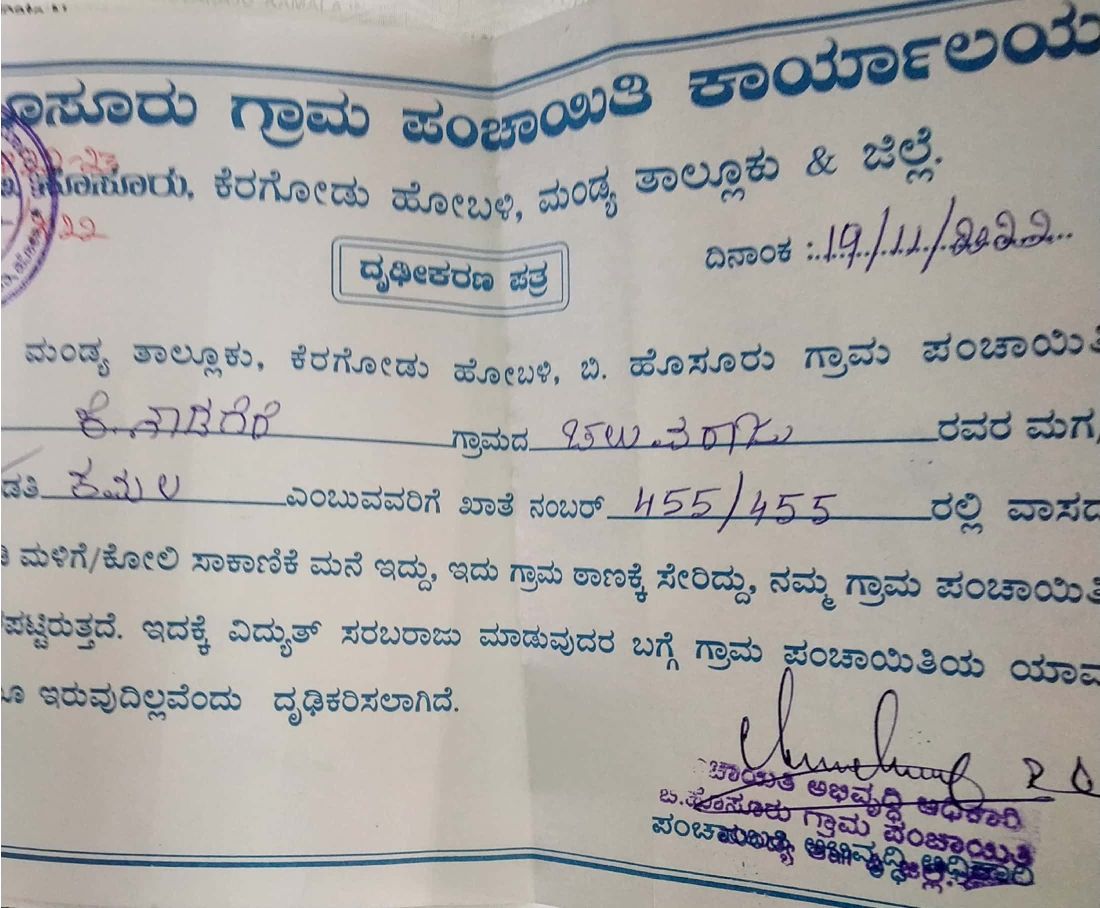 ಹೊಸೂರು ಗ್ರಾಮ ಪಂಚಾಯಿತಿ ಕಾರ್ಯಾಲಯ
ಹೊಸೂರು, ಕೆರಗೋಡು ಹೋಬಳಿ, ಮಂಡ್ಯ ತಾಲ್ಲೂಕು & ಜಿಲ್ಲೆ.
ದಿನಾಂಕ :19/11/2022
ದೃಢೀಕರಣ ಪತ್ರ
ಮಂಡ್ಯ ತಾಲ್ಲೂಕು, ಕೆರಗೋಡು ಹೋಬಳಿ, ಬಿ. ಹೊಸೂರು ಗ್ರಾಮ ಪಂಚಾಯಿತಿ
ಗ್ರಾಮದ ಚಲುವರಾಜು ರವರ ಮಗ/
ಕಮಲ ಎಂಬುವವರಿಗೆ ಖಾತೆ ನಂಬರ್ 455/455 ರಲ್ಲಿ ವಾಸದ
ಮಳಿಗೆ/ಕೋಲಿ ಸಾಕಾಣಿಕೆ ಮನೆ ಇದ್ದು, ಇದು ಗ್ರಾಮ ಠಾಣಕ್ಕೆ ಸೇರಿದ್ದು, ನಮ್ಮ ಗ್ರಾಮ ಪಂಚಾಯಿತಿ
ಪಟ್ಟಿರುತ್ತದೆ. ಇದಕ್ಕೆ ವಿದ್ಯುತ್ ಸರಬರಾಜು ಮಾಡುವುದರ ಬಗ್ಗೆ ಗ್ರಾಮ ಪಂಚಾಯಿತಿಯ ಯಾವ
ಇರುವುದಿಲ್ಲವೆಂದು ದೃಢಿಕರಿಸಲಾಗಿದೆ.
ಚಾಯಿತಿ ಅಭಿವೃದ್ಧಿ ಅಧಿಕಾರಿ
ಬಿ.ಹೊಸೂರು ಗ್ರಾಮ ಪಂಚಾಯಿತಿ
ಪಂಚಾಯಿತಿ ಅಭಿವೃದ್ಧಿ ಅಧಿಕಾರಿ